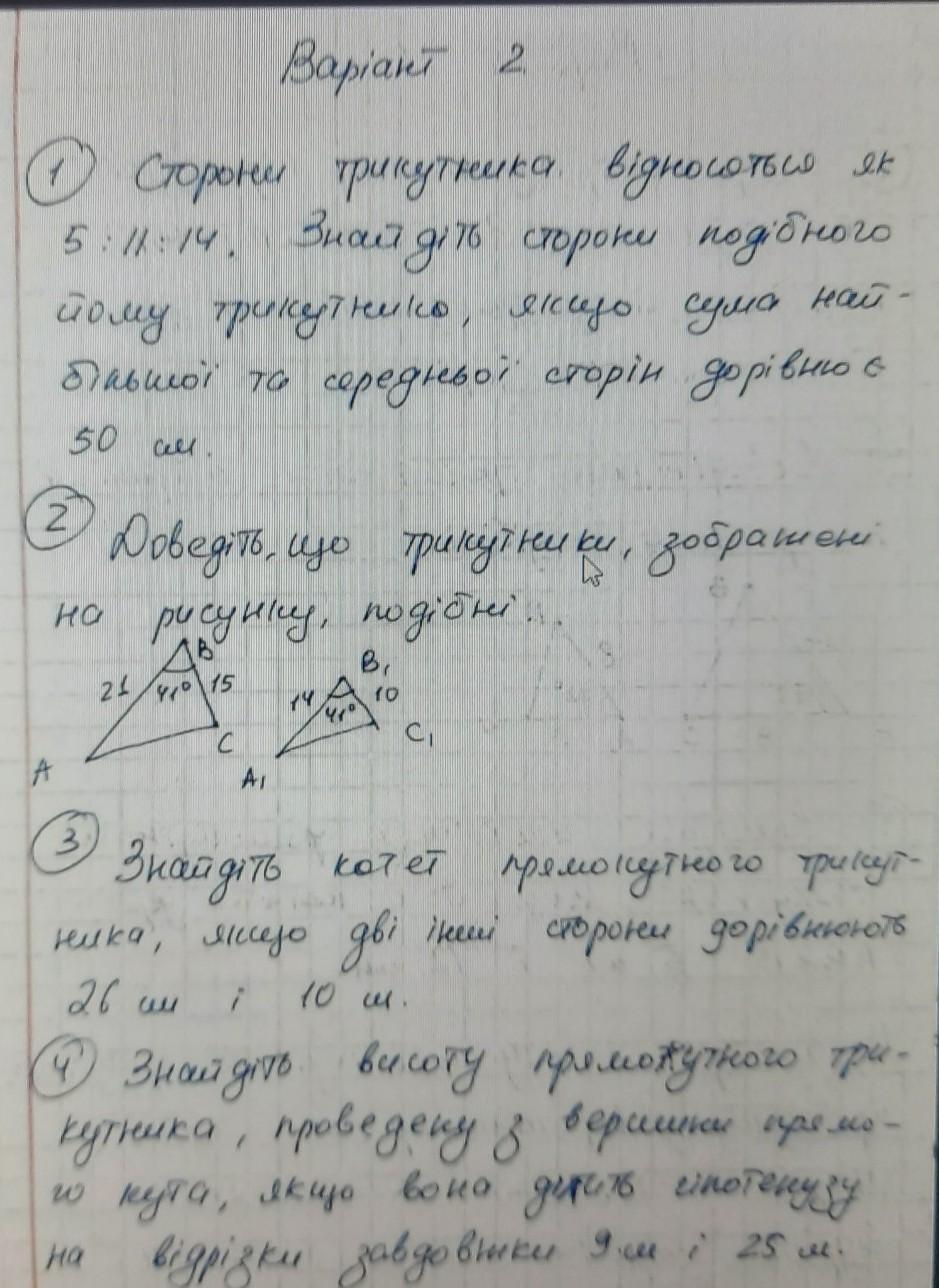 Варіант 2
① Сторони трикутника відносяться як
5 : 11 : 14. Знайдіть сторони подібного
йому трикутника, якщо сума най-
більшої та середньої сторін дорівнює
50 см.
② Доведіть, що трикутники, зображені
на рисунку, подібні.
B
B₁
21 41° 15
14 41° 10
C
C₁
A
A₁
③ Знайдіть катет прямокутного трикут-
ника, якщо дві інші сторони дорівнюють
26 см і 10 см.
④ Знайдіть висоту прямокутного три-
кутника, проведену з вершини прямо-
го кута, якщо вона ділить гіпотенузу
на відрізки завдовжки 9 см і 25 см.